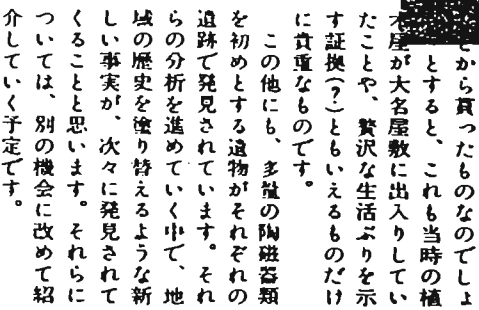 どから貰ったものなのでしょ
とすると、これも当時の植
木屋が大名屋敷に出入りしてい
たことや、贅沢な生活ぶりを示
す証拠(？)ともいえるものだけ
に貴重なものです。
この他にも、多量の陶磁器類
を初めとする遺物がそれぞれの
遺跡で発見されています。それ
らの分析を進めていく中で、地
域の歴史を塗り替えるような新
しい事実が、次々に発見されて
くることと思います。それらに
ついては、別の機会に改めて紹
介していく予定です。